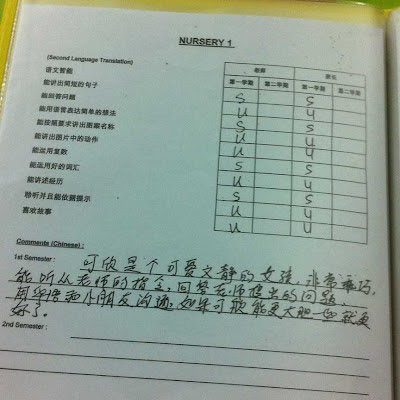 NURSERY 1
(Second Language Translation)
老师 家长
语文智能 第一学期 第二学期 第一学期 第二学期
能讲出简短的句子 S S
能回答问题 U U
能用语言表达简单的想法 S S
能按照要求讲出图案名称 U U
能讲出图片中的动作 U U
能运用复数 S S
能运用好的词汇 U U
能讲述经历 S S
聆听并且能依据提示 U U
喜欢故事 U U
Comments (Chinese) :
1st Semester : 可欣是个可爱文静的女孩,非常乖巧,
能听从老师的指令,回答老师提出的问题,
用华语和小朋友沟通,如果可欣能更大胆一些就更
好了。
2nd Semester :